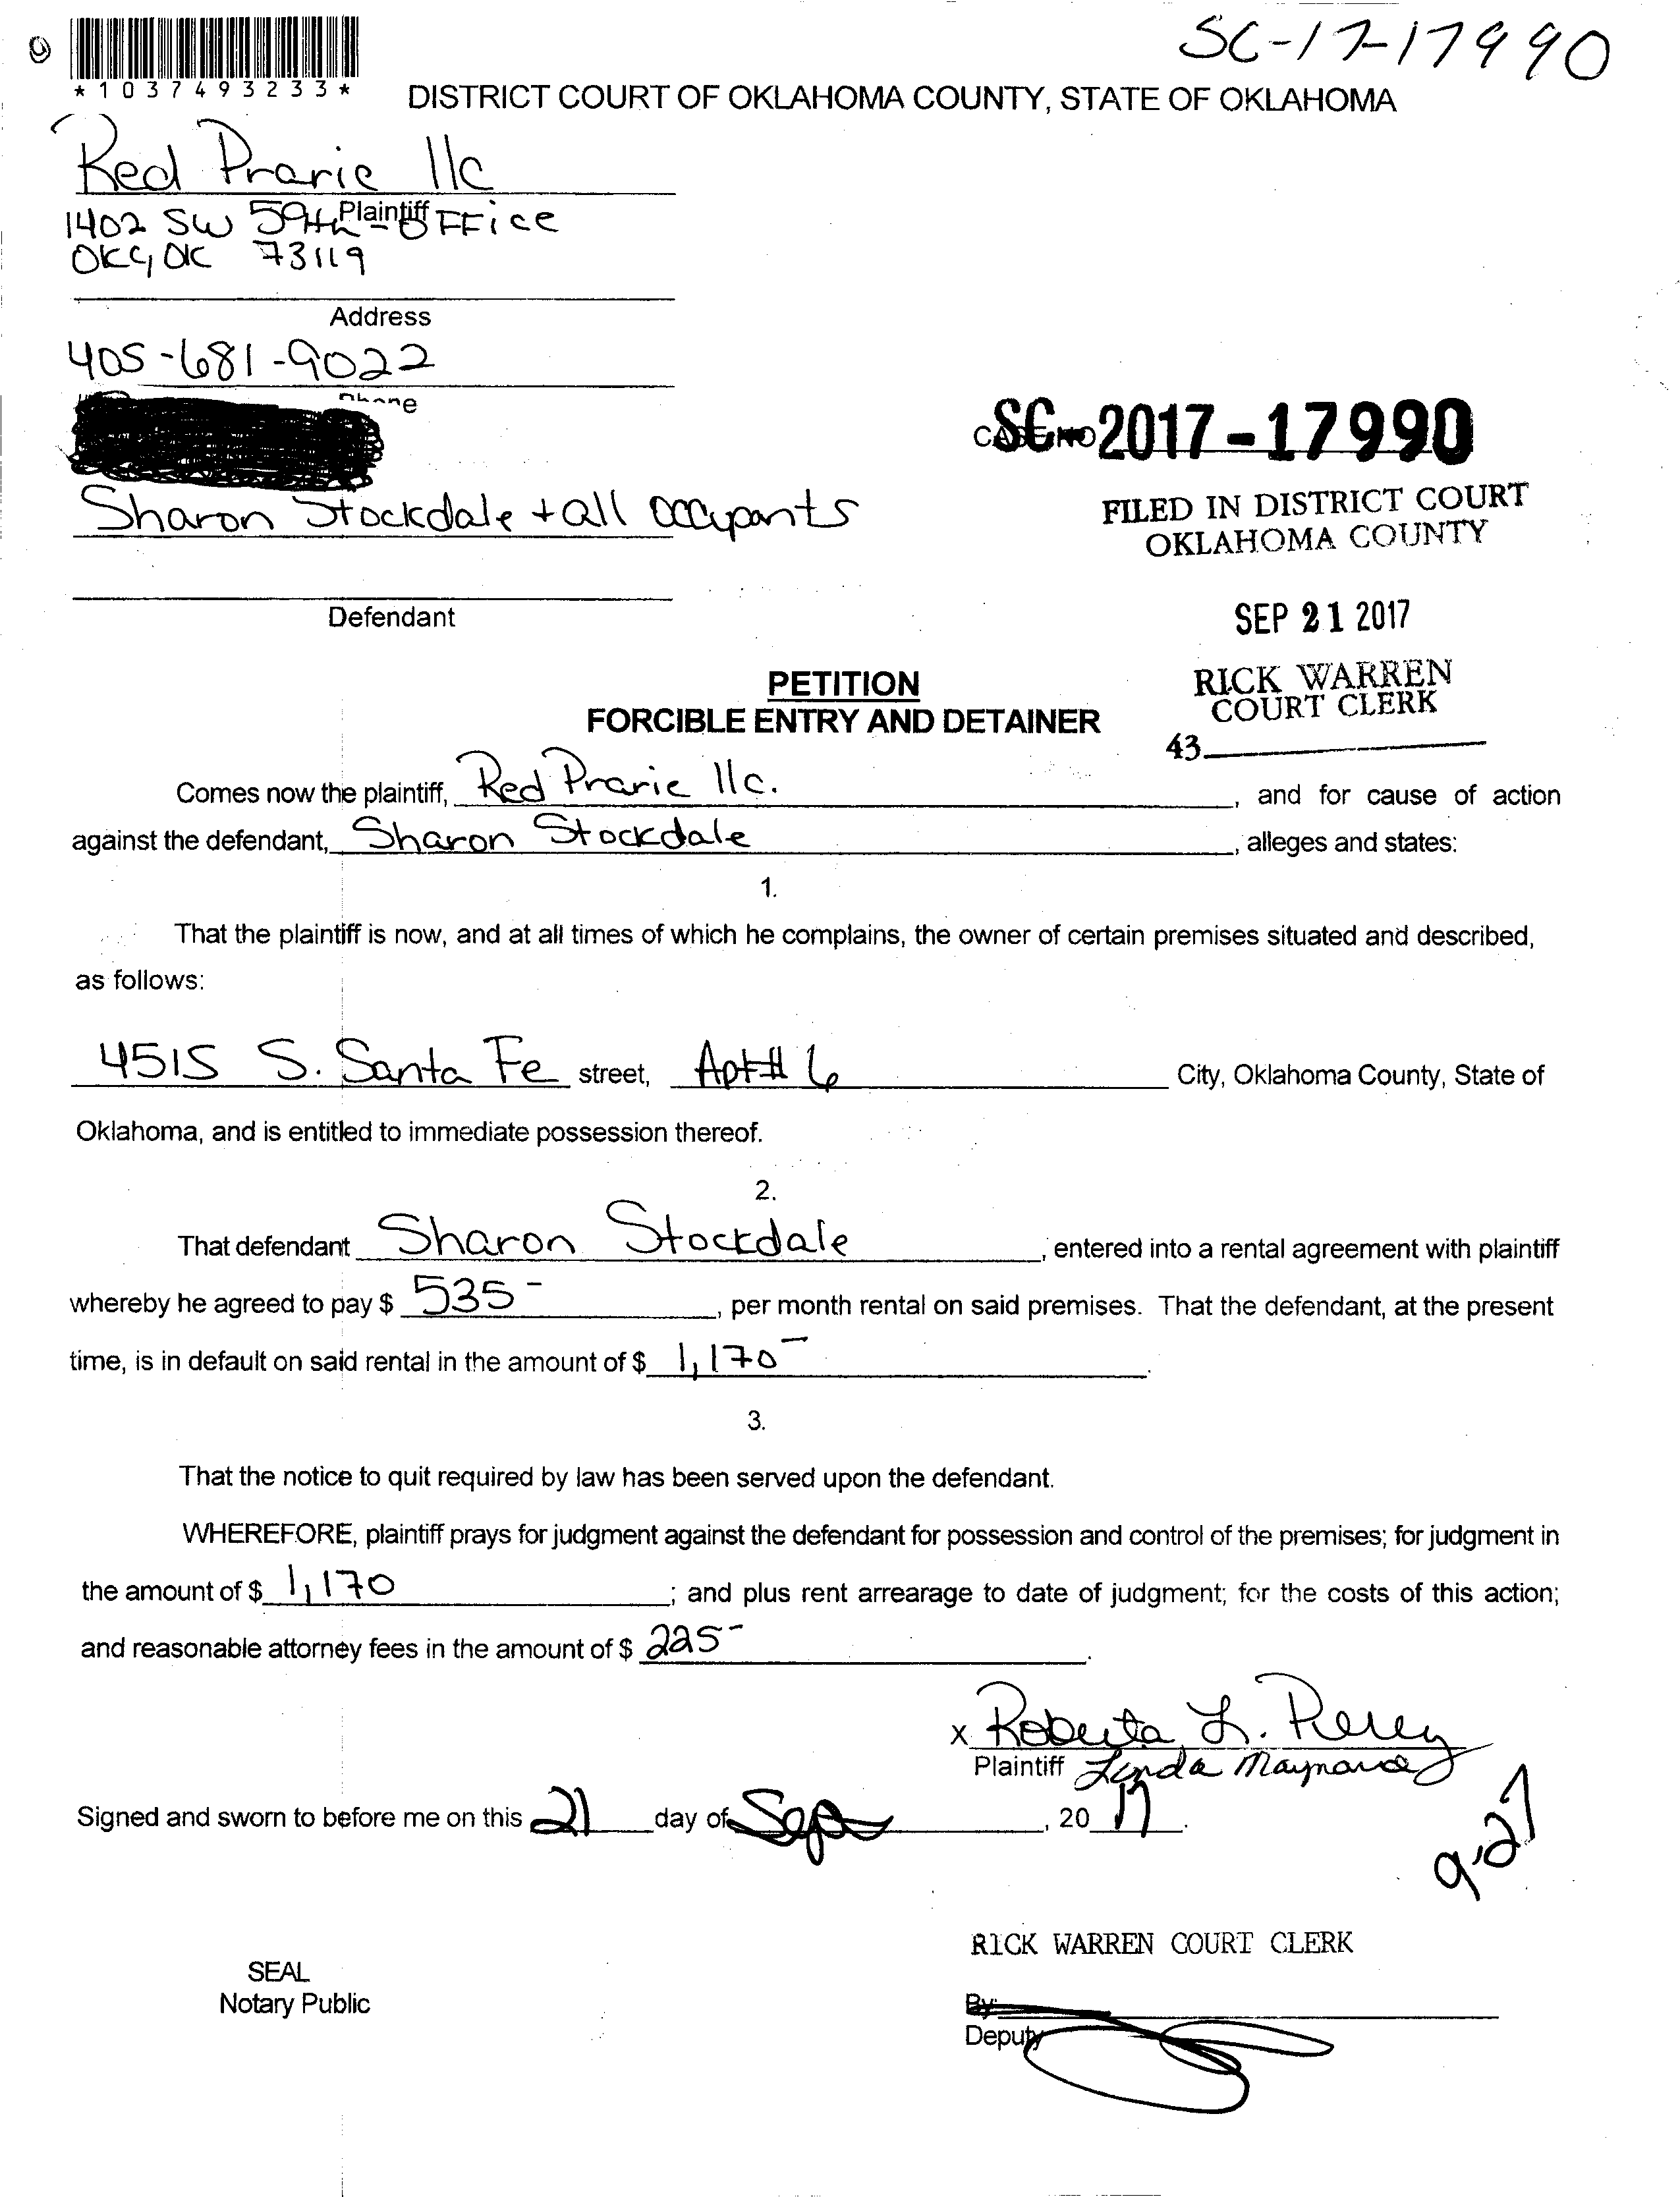 SC-17-17990
*1037493233*
DISTRICT COURT OF OKLAHOMA COUNTY, STATE OF OKLAHOMA
Red Prarie llc
Plaintiff
1402 SW 59th - OFFice
OKC, OK 73119
Address
405-681-9022
Phone
Sharon Stockdale + all occupants
Defendant
CASE NO
SC-2017-17990
FILED IN DISTRICT COURT
OKLAHOMA COUNTY
SEP 21 2017
RICK WARREN
COURT CLERK
43
PETITION
FORCIBLE ENTRY AND DETAINER
Comes now the plaintiff, Red Prarie llc. , and for cause of action
against the defendant, Sharon Stockdale , alleges and states:
1.
That the plaintiff is now, and at all times of which he complains, the owner of certain premises situated and described,
as follows:
4515 S. Santa Fe street, Apt# 6 City, Oklahoma County, State of
Oklahoma, and is entitled to immediate possession thereof.
2.
That defendant Sharon Stockdale , entered into a rental agreement with plaintiff
whereby he agreed to pay $ 535- , per month rental on said premises. That the defendant, at the present
time, is in default on said rental in the amount of $ 1,170- .
3.
That the notice to quit required by law has been served upon the defendant.
WHEREFORE, plaintiff prays for judgment against the defendant for possession and control of the premises; for judgment in
the amount of $ 1,170 ; and plus rent arrearage to date of judgment; for the costs of this action;
and reasonable attorney fees in the amount of $ 225- .
x Roberta L.
Plaintiff Linda Maynard
Signed and sworn to before me on this 21 day of Sept , 20 17 .
9-27
RICK WARREN COURT CLERK
SEAL
Notary Public
By:
Deputy